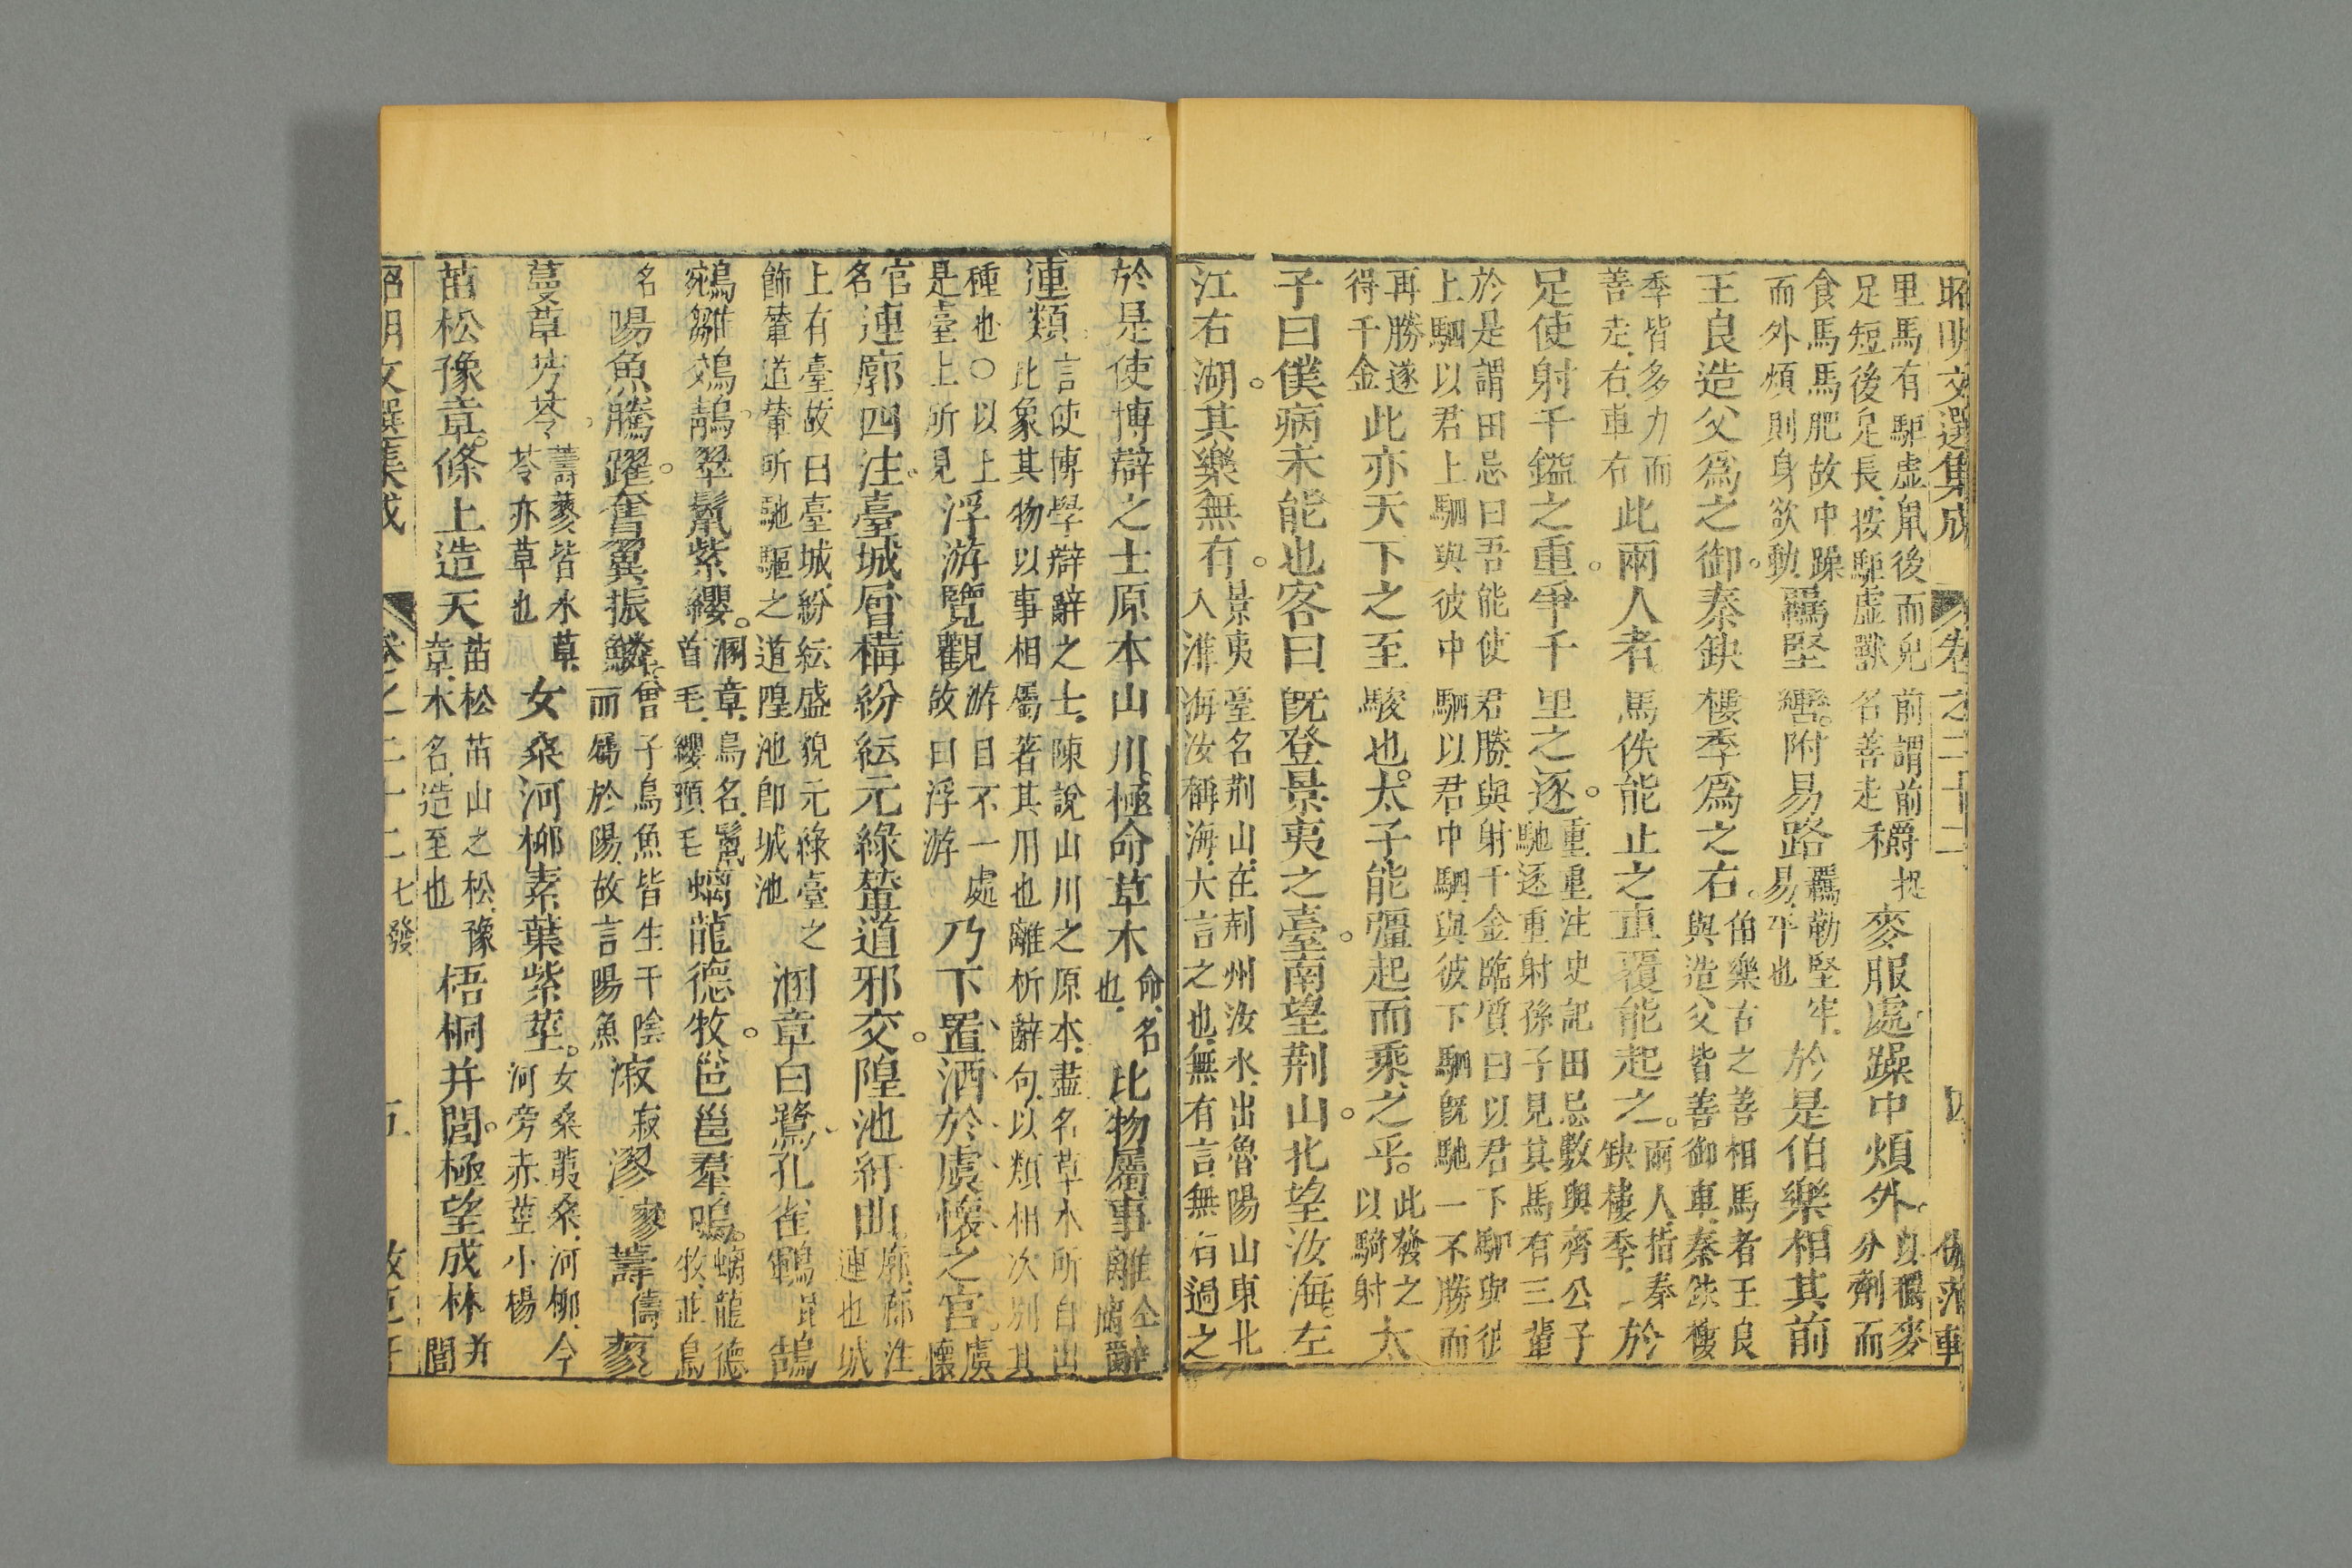 昭明文選集成 卷之三十二 四
里馬有駏虛鼠後而兔前謂前穱捉
足短後足長按駏虛獸名善走穱麥服處躁中煩外以穱麥分劑而
食馬馬肥故中躁
而外煩則身欲動羈堅轡附易路羈勒堅牢易平也於是伯樂相其前
王良造父爲之御秦缺樓季爲之右伯樂古之善相馬者王良與造父皆善御車秦缺樓
季皆多力而善走右車右此兩人者馬佚能止之車覆能起之兩人指秦缺樓季於
足使射千鎰之重爭千里之逐重重注史記田忌數與齊公子馳逐重射孫子見其馬有三輩
於是謂田忌曰吾能使君勝與射千金臨質曰以君下駟與彼
上駟以君上駟與彼中駟以君中駟與彼下駟旣馳一不勝而
再勝遂得千金此亦天下之至駿也太子能彊起而乘之乎此發之以騎射太
子曰僕病未能也客曰旣登景夷之臺南望荆山北望汝海左
江右湖其樂無有景夷臺名荆山在荆州汝水出魯陽山東北入淮海汝稱海大言之也無有言無有過之
於是使博辯之士原本山川極命草木命名也比物屬事離仝屬辭
連類言使博學辯辭之士陳說山川之原本盡名草木所自出此象其物以事相屬著其用也離析辭句以類相次別其
種也○以上是臺上所見浮游覽觀游目不一處故曰浮游乃下置酒於虞懷之宮虞懷
宮名連廓四注臺城層構紛紜元綠輦道邪交隍池紆曲廓廊注連也城
上有臺故曰臺城紛紜盛貌元綠臺之飾輦道輦所馳驅之道隍池卽城池溷章白鷺孔雀鶤昆鵠
鵷雛鵁鶄翠鬣紫纓溷章鳥名鬣首毛纓頸毛螭龍德牧邕邕羣鳴螭龍德牧並鳥
名陽魚騰躍奮翼振鱗曾子鳥魚皆生于陰而屬於陽故言陽魚漃寂漻寥薵儔蓼
蔓草芳苓薵蓼皆水草苓亦草也女桑河柳素葉紫莖女桑荑桑河柳今河旁赤莖小楊
苗松豫章條上造天苗松苗山之松豫章木名造至也梧桐并閭極望成林并閭
昭明文選集成 卷之三十二 七發 五